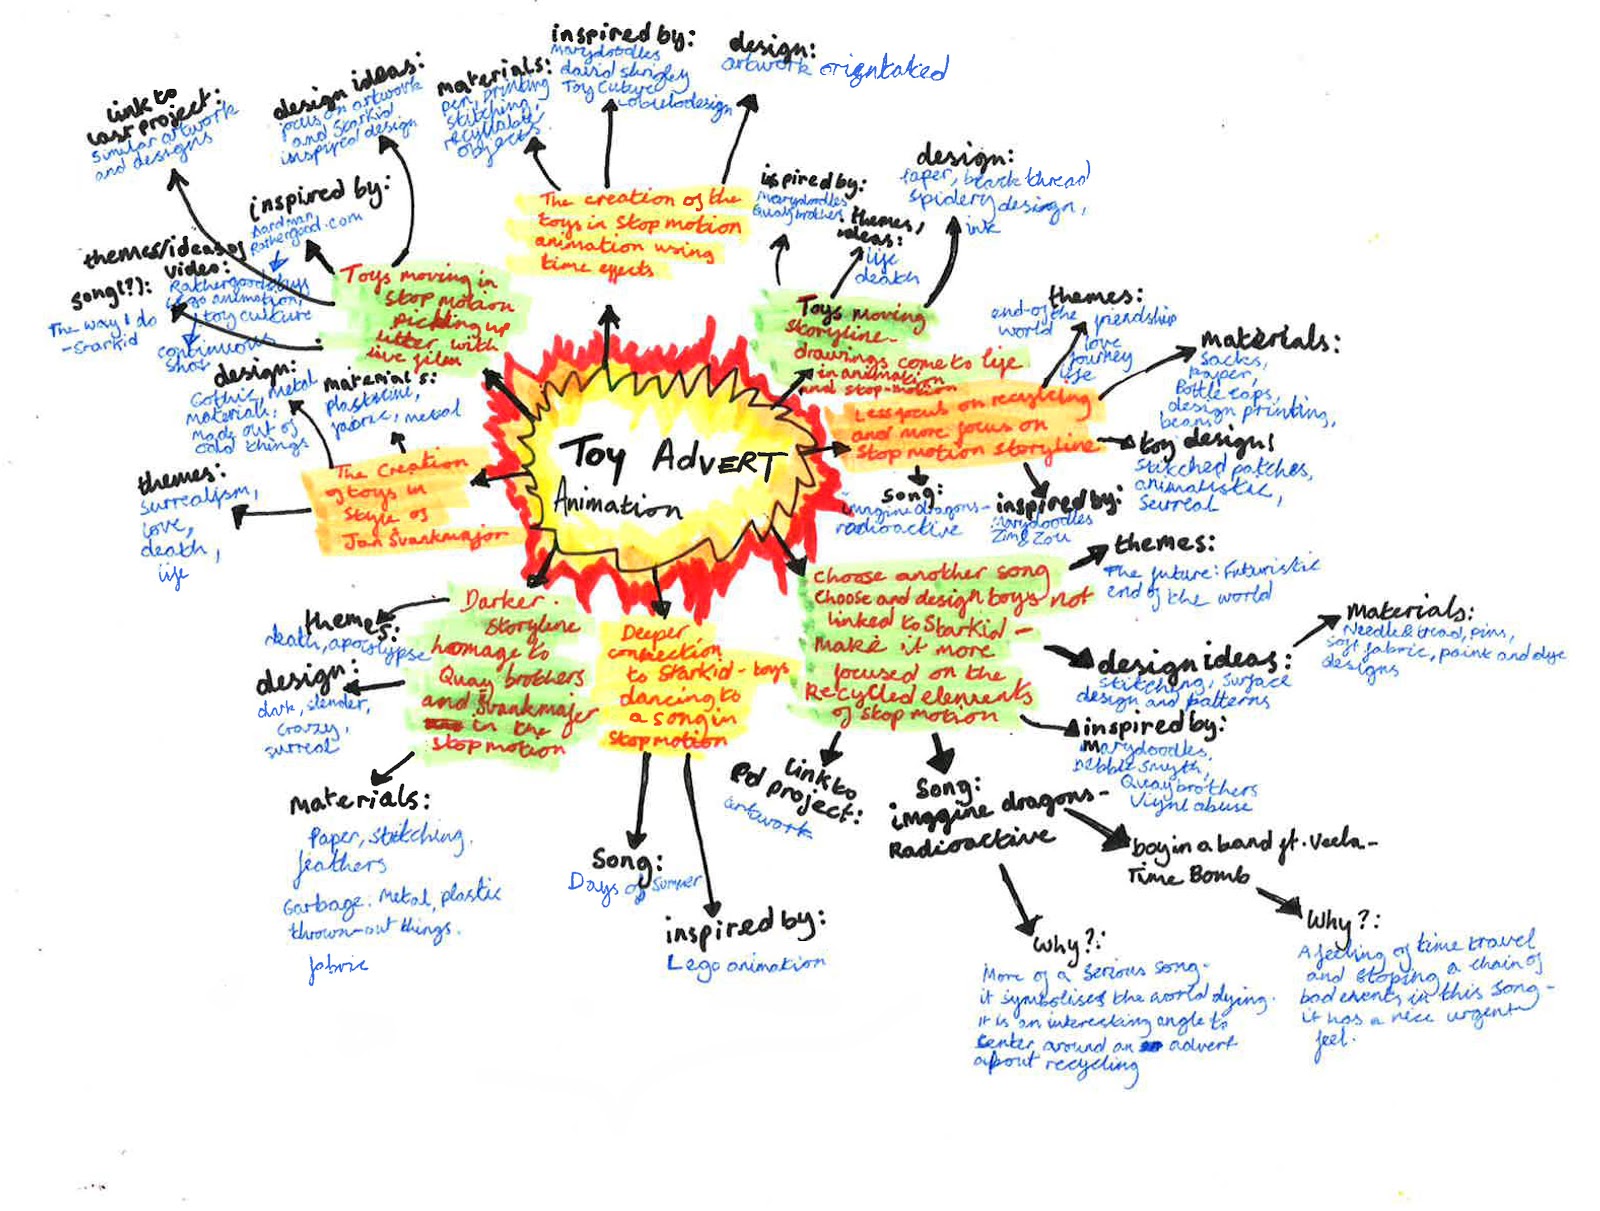 Toy Advert
Animation
link to
last project:
Similar artwork
and designs
design ideas:
focus on artwork
and Starkid
inspired design
inspired by:
Aardman
Rathergood.com
themes/ideas of
video:
Lego animation,
toy culture
continuous
shot
song(?):
The way I do
-Starkid
Toys moving in
stop motion
picking up
litter with
live film
materials:
pen, printing
stitching,
recyllable
objects
inspired by:
Marydoodles
david shrigley
Toy Culture
design:
artwork orientated
The creation of the
toys in stop motion
animation using
time effects
inspired by:
Marydoodles
Quay brothers
themes,
ideas:
life
death
design:
Paper, black thread
spidery design,
ink
Toys moving
storyline-
drawings come to life
in animation
and stop-motion
themes:
end-of the friendship
world love
journey
life
materials:
Sacks,
paper,
Bottle caps,
design printing,
beans
toy designs
stitched patches,
animalistic,
surreal
inspired by:
Marydoodles
song:
imagine dragons-
radioactive
Less focus on recycling
and more focus on
stop motion storyline
design:
Gothic, metal
materials:
made out of
odd things
materials:
plastscine,
fabric, metal
themes:
surrealism,
love,
death,
life
The Creation
of toys in
style of
Jan Svankmajor
themes:
death, apocslypse
design:
dark, slender,
crazy,
surreal
materials:
Paper, stitching.
feathers
Garbage: Metal, plastic
thrown-out things.
fabric
Darker
storyline
hoomage to
Quay brothers
and Svankmajer
in the
stop motion
Deeper
connection
to Starkid - toys
dancing to
a song in
stop motion
Song:
Days of Summer
inspired by:
Lego animation
Choose another song
choose and design toys not
linked to StarKid -
make it more
focused on the
Recycled elements
of stop motion
themes:
The future: Futuristic
end of the world
design ideas:
stitching, surface
design and patterns
Materials:
Needle & tread, pins,
soft fabric, paint and dye
designs
inspired by:
Marydoodles,
Debbie Smyth,
Quay brothers
Viynl abuse
link to
old project:
artwork
Song:
imagine dragons-
Radioactive
boy in a band ft. Veela-
Time Bomb
Why?:
More of a serious song-
it symbolises the world dying.
it is an interesting angle to
center around an advert
about recycling
Why?:
A feeling of time travel
and stoping a chain of
bad events in this song-
it has a nice urgent
feel.